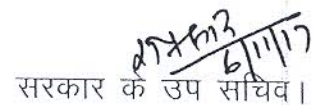 6/11/17
सरकार के उप सचिव।